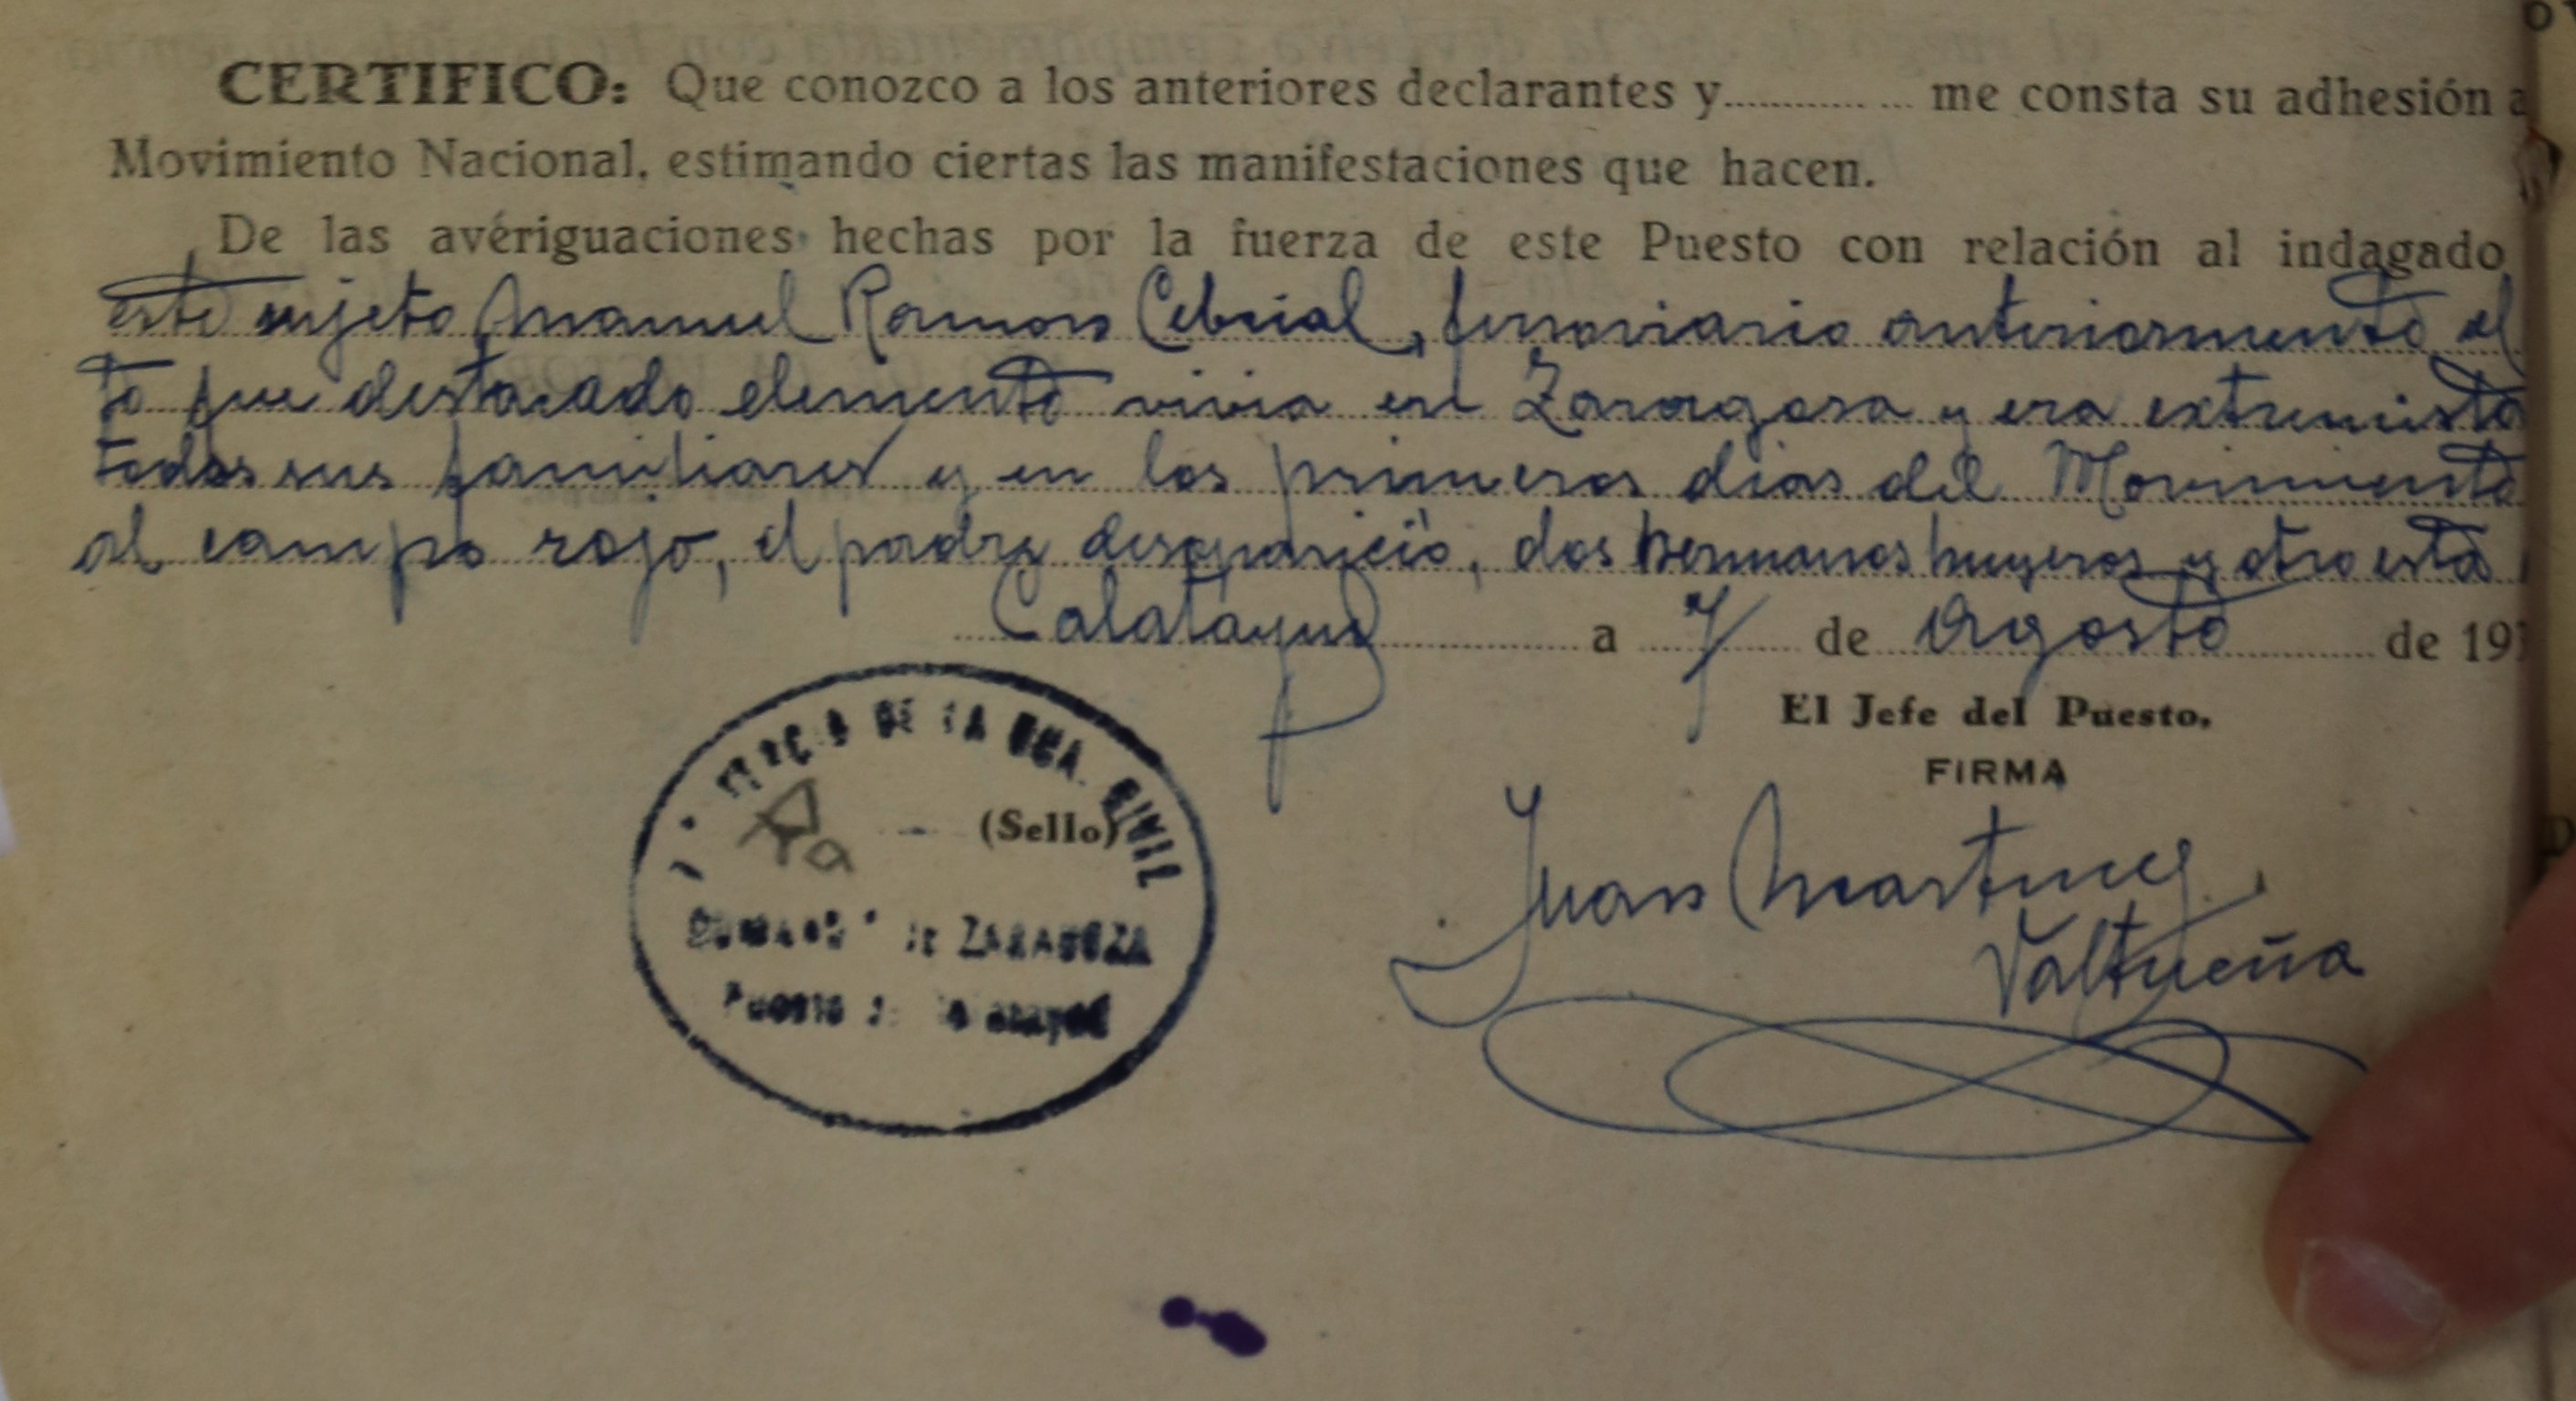 CERTIFICO: Que conozco a los anteriores declarantes y............ ... me consta su adhesión a
Movimiento Nacional, estimando ciertas las manifestaciones que hacen.
De las avériguaciones hechas por la fuerza de este Puesto con relación al indagado
este sujeto Manuel Ramos Cebrial, ferroviario anteriormente al
to fue destacado elemento vivia en Zaragosa y era extremista
todos sus familiares y en los primeros dias del Movimiento
al campo rojo, el padre desaparició, dos hermanos huyeros y otro está
Calatayud a 7 de Agosto de 19
El Jefe del Puesto.
FIRMA
TERCIO DE LA GUA. CIVIL
(Sello)
DE ZARAGOZA
Puesto
Juan Martinez
Valtueña